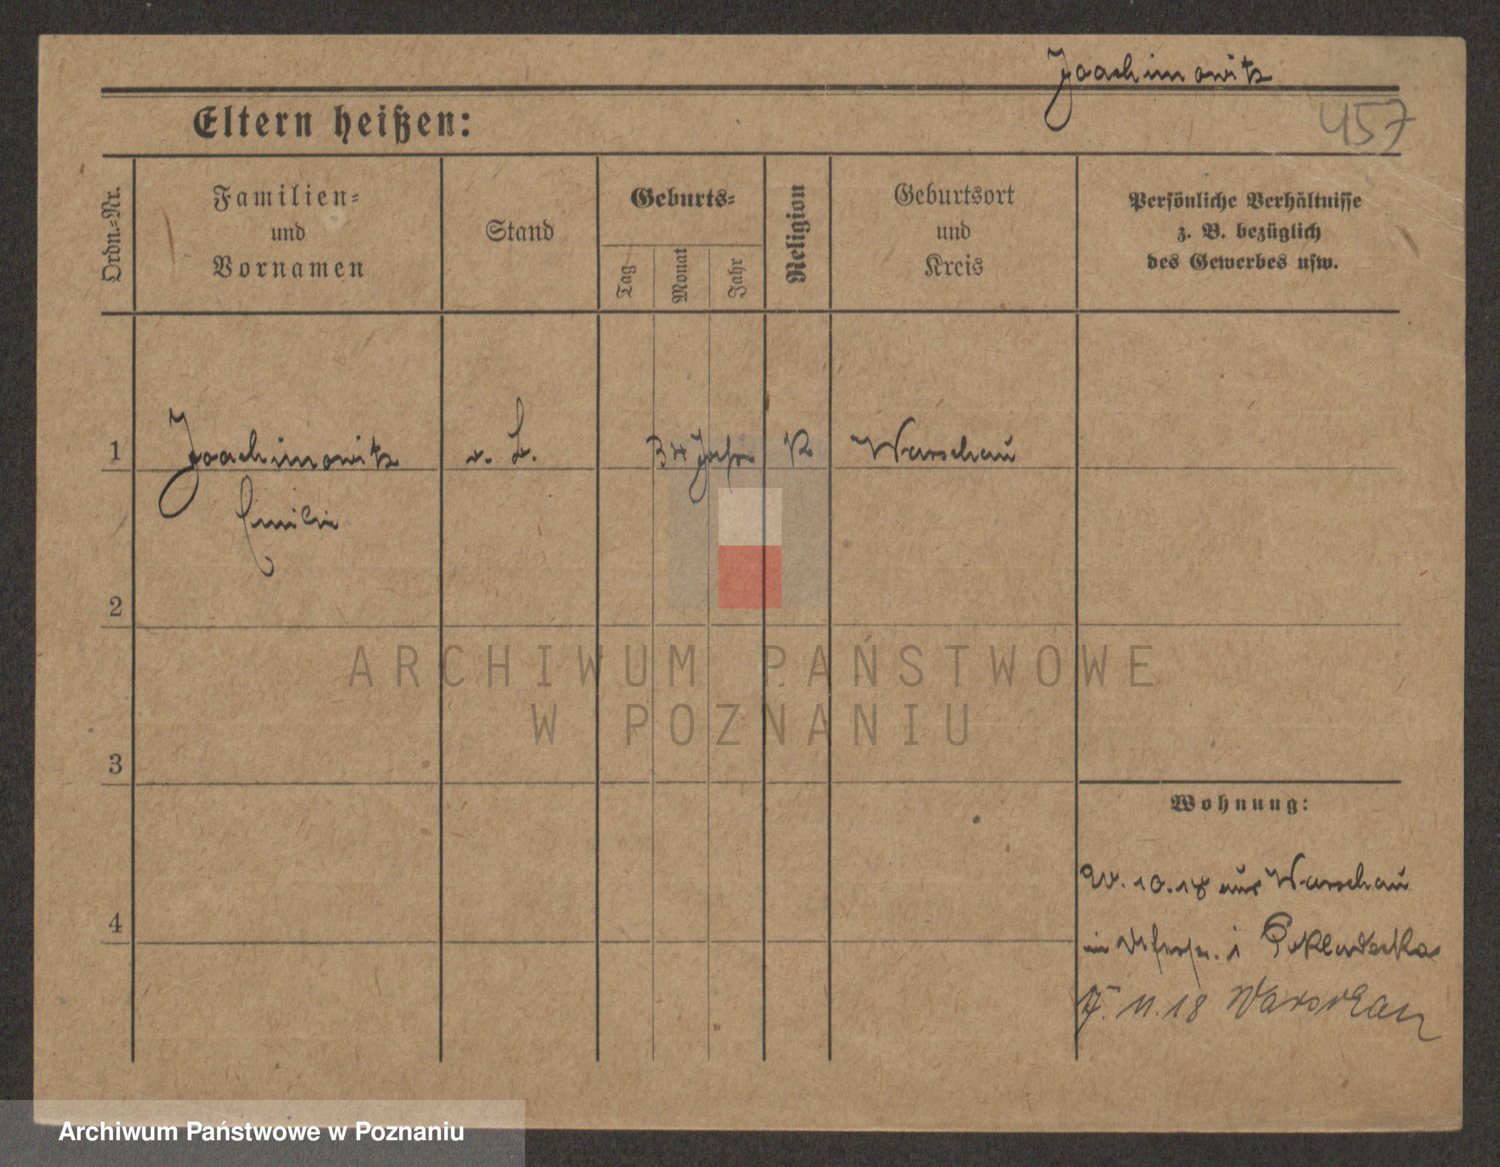 Joachimowitz
457
Eltern heißen:
Ordn.-Nr.
Familien-
und
Vornamen
Stand
Geburts-
Tag
Monat
Jahr
Religion
Geburtsort
und
Kreis
Persönliche Verhältnisse
z. B. bezüglich
des Gewerbes usw.
1 Joachimowitz v. L. 34 Jahre K Warschau
Emilie
2
3
4
ARCHIWUM PAŃSTWOWE
W POZNANIU
Wohnung:
10.18 aus Warschau
in
11.18 Warschau
Archiwum Państwowe w Poznaniu